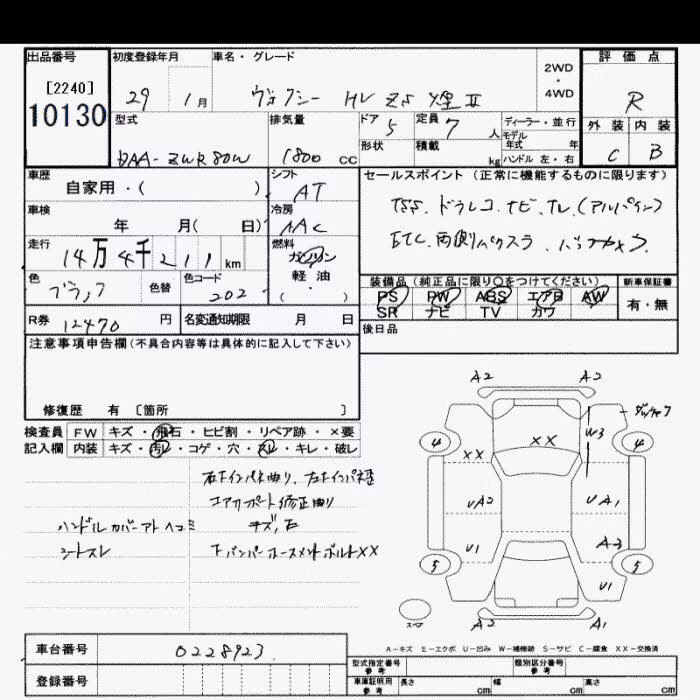 出品番号 初度登録年月 車名・グレード 評価点
[2240]
10130
29 1月 ヴォクシー HV ZS 煌Ⅱ
2WD
・
4WD
R
型式 排気量 ドア 定員 ディーラー・並行 外装 内装
DAA-ZWR80W 1800cc 5 7人
モデル年式 年
形状 積載 kg ハンドル 左・右
C B
車歴 シフト セールスポイント(正常に機能するものに限ります)
自家用・( ) AT
TSS、ドラレコ、ナビ、TV、(アルパイン)
車検 冷房
年 月( 日) AAC
ETC、両側パワスラ、バックカメラ
走行 燃料
14万4千211km
ガソリン
軽・油
・
( )
色 色替 色コード
ブラック 202
装備品(純正品に限り○をつけてください) 新車保証書
PS PW ABS エアB AW
SR ナビ TV カワ
有・無
R券 12470円 名変通知期限 月 日
後日品
注意事項申告欄(不具合内容等は具体的に記入して下さい)
修復歴 有 〔箇所 〕
検査員 FW キズ・飛石・ヒビ割・リペア跡・×要
記入欄 内装 キズ・汚レ・コゲ・穴・スレ・キレ・破レ
右インパネ曲り、左インパネ歪
コアサポート修正曲り
ハンドルカバーアトヘコミ キズ、下
シートスレ 下バンパーホースメントボルトXX
A2 A2
4 XX XX W3 4
UA2 UA1
U1 A3
5 U1 5
スペア A2 A1
A-キズ E-エクボ U-凹み W-補修跡 S-サビ C-腐食 XX-交換済
車台番号 0228923
登録番号
型式指定番号 参考 類別区分番号 参考
車庫証明用 参考 長さ cm 幅 cm 高さ cm